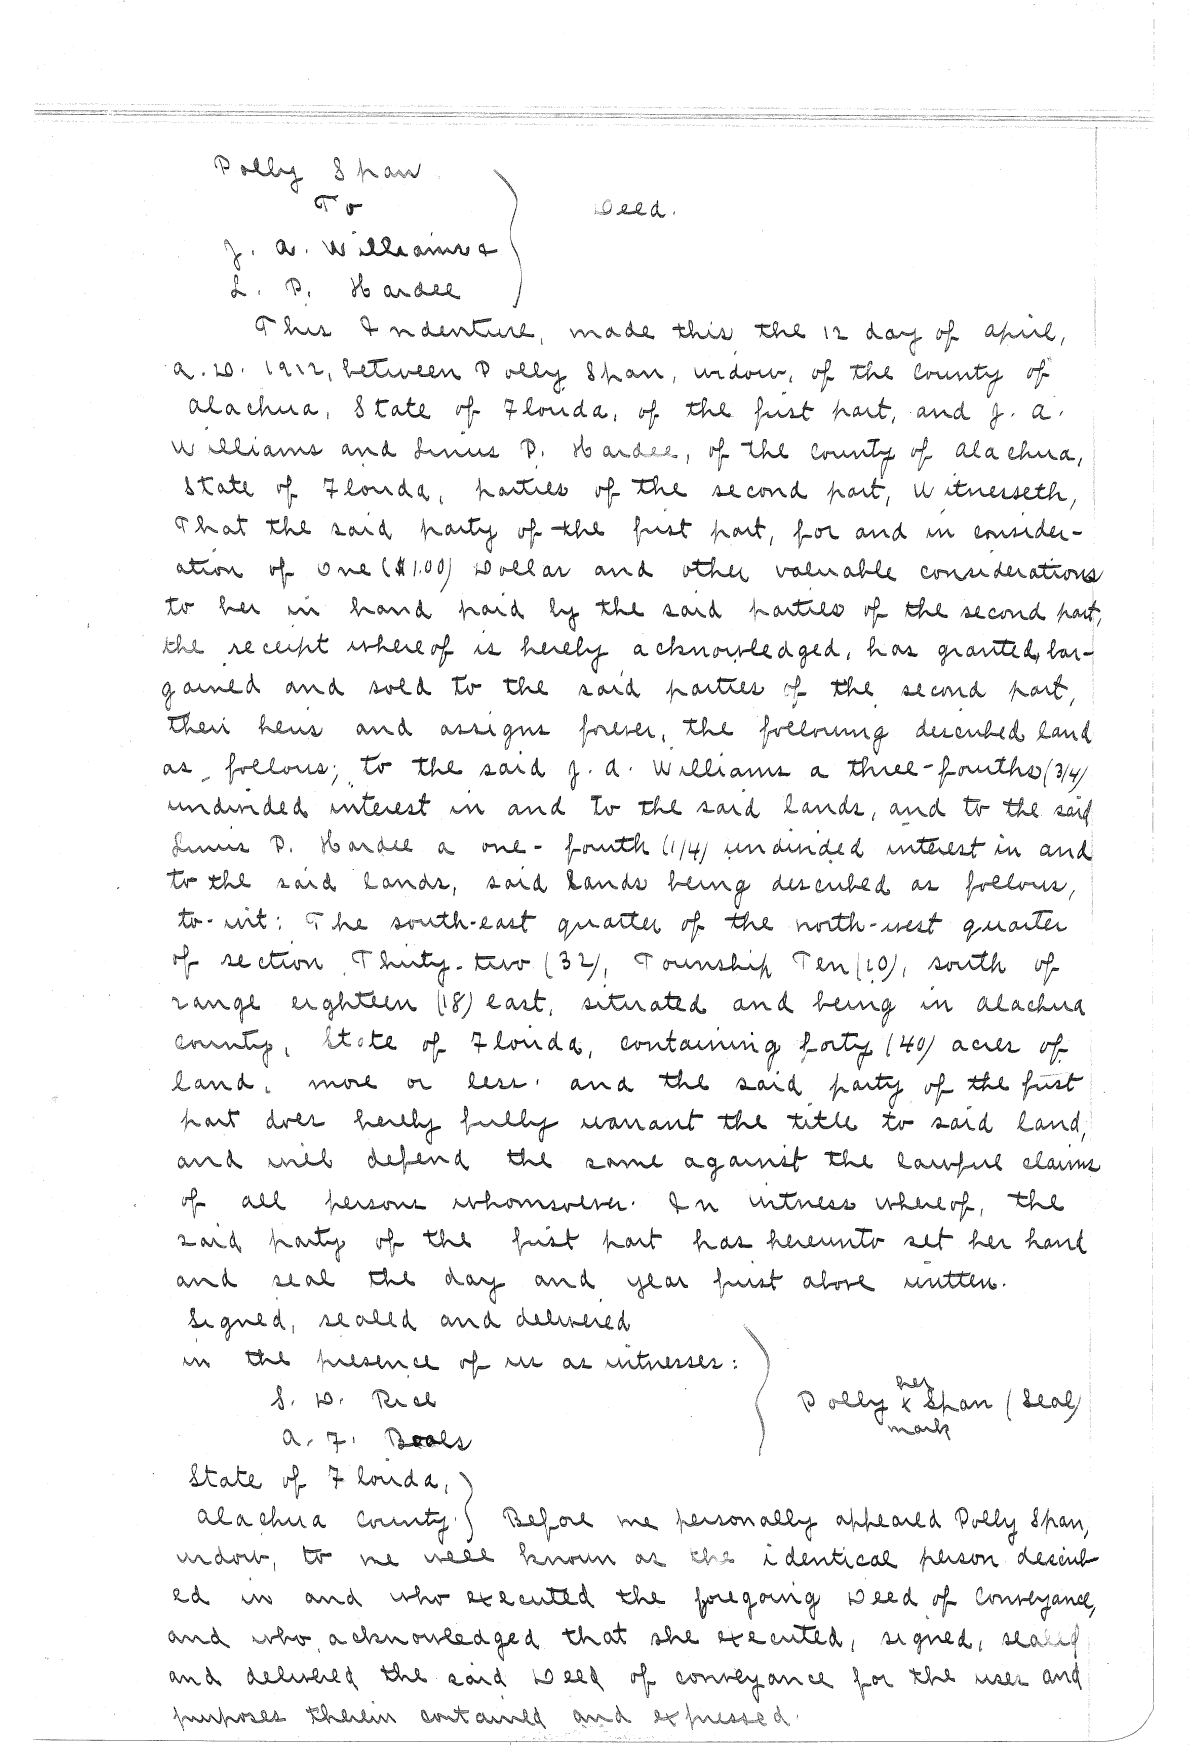 Polly Span
To
Deed.
J. A. Williams &
L. P. Hardee
This Indenture, made this the 12 day of April,
A. D. 1912, between Polly Span, widow, of the County of
Alachua, State of Florida, of the first part, and J. A.
Williams and Linus P. Hardee, of the County of Alachua,
State of Florida, parties of the second part, Witnesseth,
That the said party of the first part, for and in consider-
ation of One ($1.00) Dollar and other valuable considerations
to her in hand paid by the said parties of the second part,
the receipt whereof is hereby acknowledged, has granted, bar-
gained and sold to the said parties of the second part,
their heirs and assigns forever, the following described land
as follows; to the said J. A. Williams a three-fourths (3/4)
undivided interest in and to the said lands, and to the said
Linus P. Hardee a one-fourth (1/4) undivided interest in and
to the said lands, said lands being described as follows,
to-wit: The south-east quarter of the north-west quarter
of section Thirty-two (32), Township Ten (10), south of
range eighteen (18) east, situated and being in Alachua
County, State of Florida, containing forty (40) acres of
land, more or less. And the said party of the first
part does hereby fully warrant the title to said land,
and will defend the same against the lawful claims
of all persons whomsoever. In witness whereof, the
said party of the first part has hereunto set her hand
and seal the day and year first above written.
Signed, sealed and delivered
in the presence of us as witnesses:
S. D. Rice
her
Polly x Span (Seal)
mark
A. F. Beals
State of Florida,
Alachua County. Before me personally appeared Polly Span,
widow, to me well known as the identical person describ-
ed in and who executed the foregoing Deed of Conveyance,
and who acknowledged that she executed, signed, sealed
and delivered the said Deed of conveyance for the uses and
purposes therein contained and expressed.